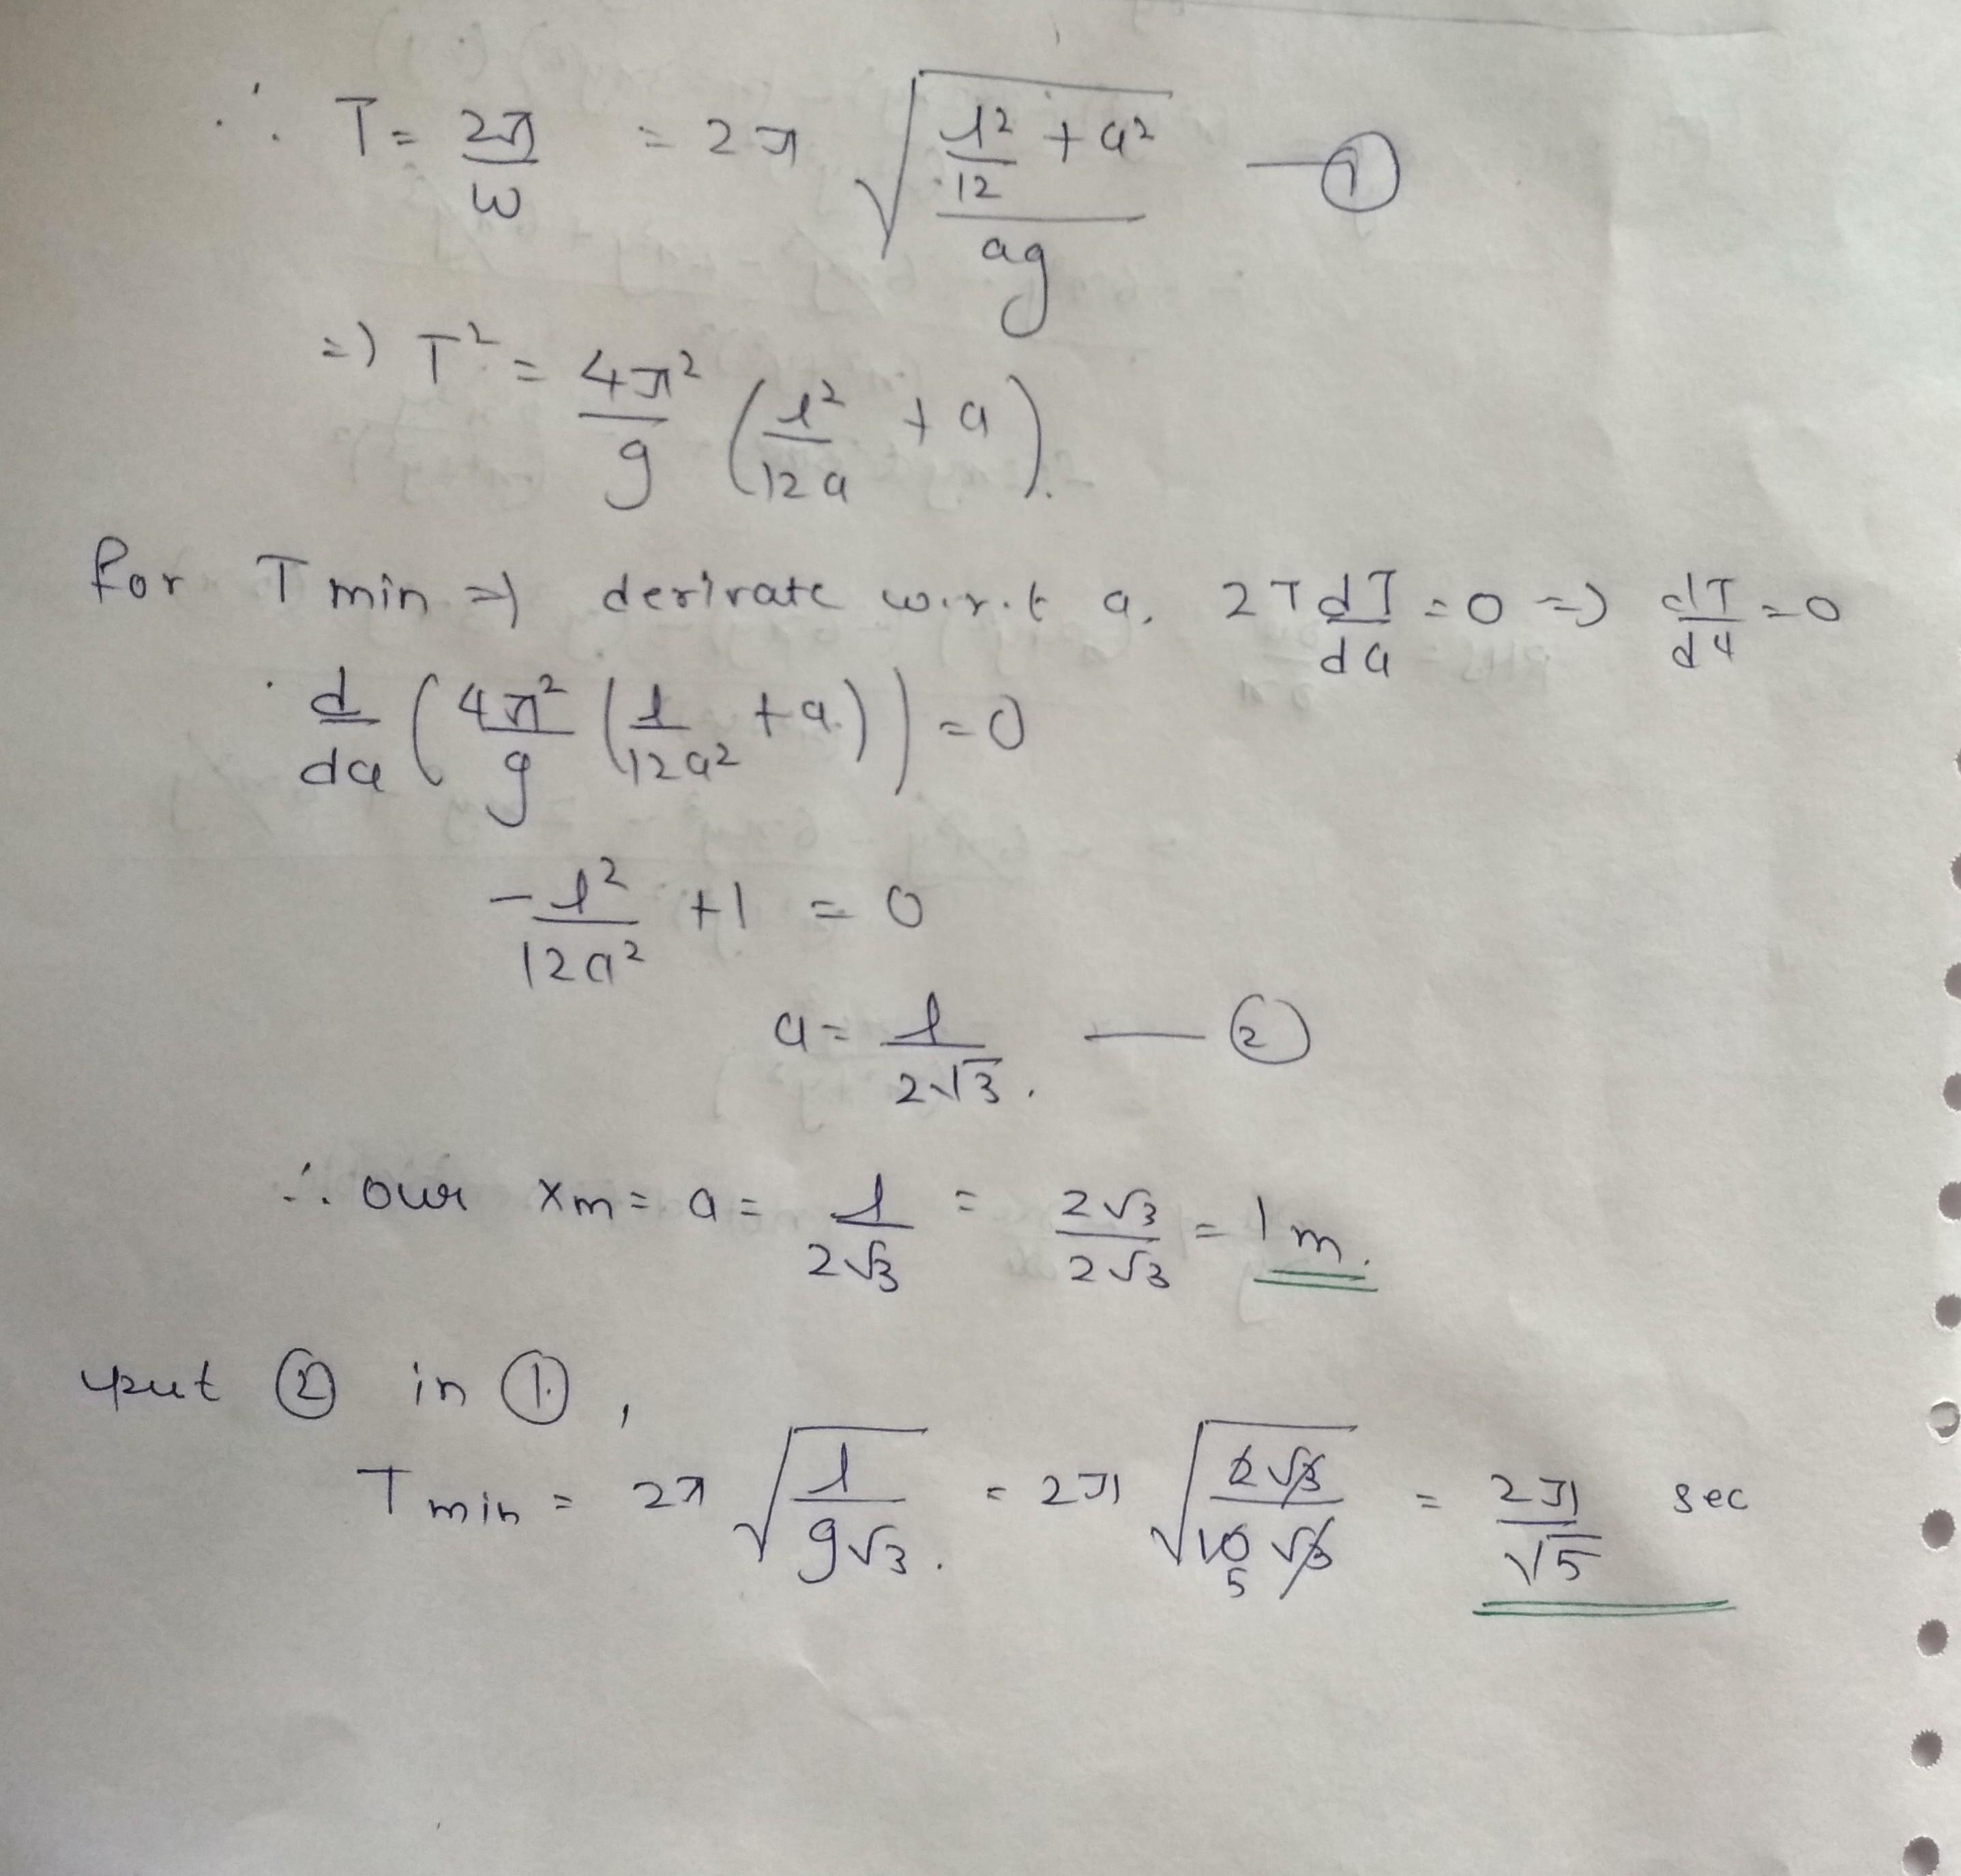 ∴ T = 2π/ω = 2π √((l²/12 + a²)/(ag)) — ①
=) T² = 4π²/g (l²/12a + a).
for T min =) derivate w.r.t a. 2T dT/da = 0 =) dT/da = 0
d/da (4π²/g (l/12a² + a.)) = 0
-l²/12a² + 1 = 0
a = l/2√3. — ②
∴ our xm = a = l/2√3 = 2√3/2√3 = 1 m.
put ② in ①.,
T min = 2π √(l/g√3.) = 2π √(2√3/10√3) 5 = 2π/√5 sec